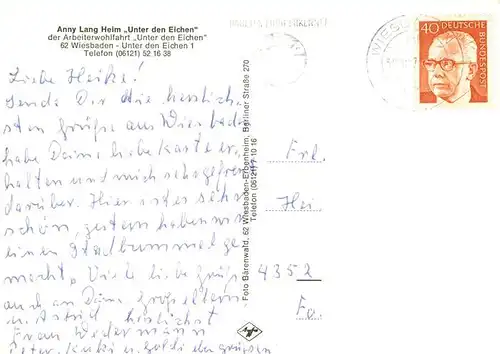 Anny Lang Heim „Unter den Eichen"
der Arbeiterwohlfahrt „Unter den Eichen"
62 Wiesbaden - Unter den Eichen 1
Telefon (06121) 52 16 38
Liebe Heike!
Sende Dir die herzlich-
sten Grüße aus Wiesbaden
habe Deine liebe Karte er-
halten und mich sehr gefreut
darüber. Hier ist es sehr
schön, gestern haben wir
einen Stadtbummel ge-
macht. Viele liebe Grüße
auch an Deine Großeltern
u. Astrid herzlichst
Frau
Peter, u. Goldi
Foto Bärenwald, 62 Wiesbaden-Erbenheim, Berliner Straße 270
Telefon (06121) 7 10 16
WIESB
40
DEUTSCHE BUNDESPOST
Frl.
Hei
4352